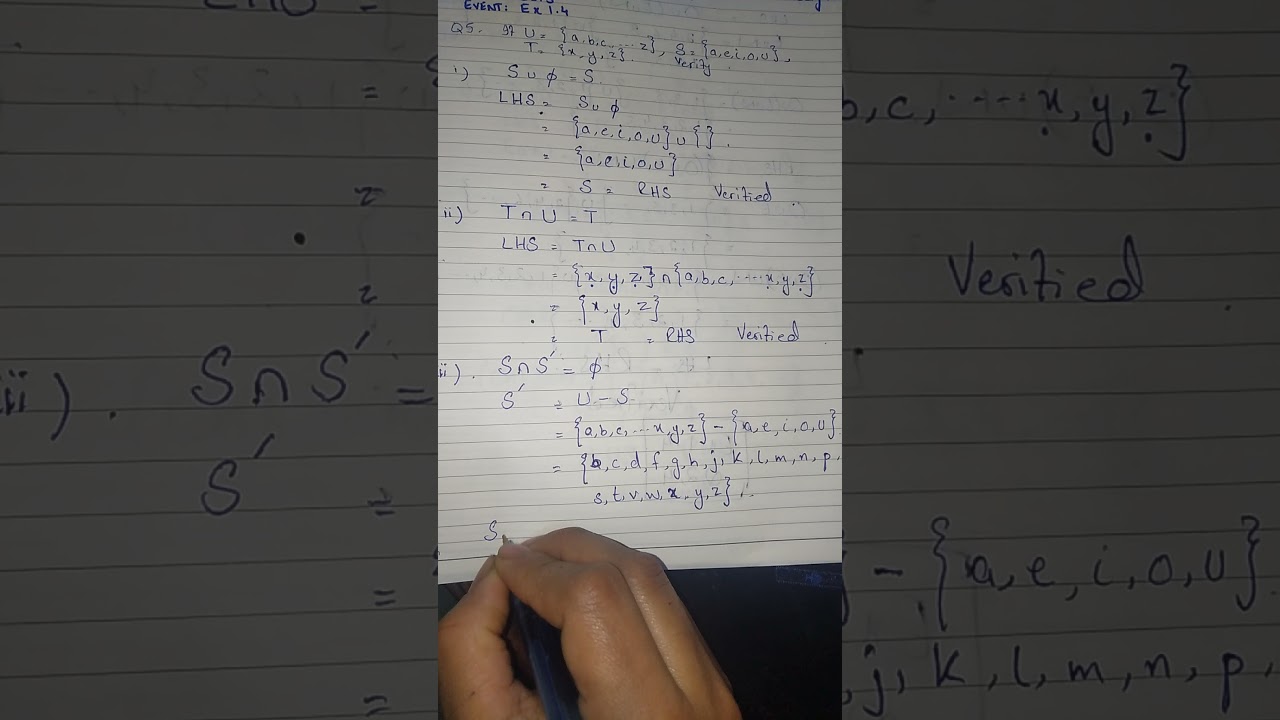 EVENT: Ex 1.4
Q5. If U = {a,b,c,.....z}, S = {a,e,i,o,u},
T = {x,y,z}. Verify
i) S∪φ = S.
LHS = S∪φ
= {a,e,i,o,u}∪{}.
= {a,e,i,o,u}
= S = RHS Verified.
ii) T∩U = T
LHS = T∩U
= {x,y,z}∩{a,b,c,.....x,y,z}
= {x,y,z}
= T = RHS Verified.
ii). S∩S' = φ
S' = U - S
= {a,b,c,...x,y,z} - {a,e,i,o,u}
= {b,c,d,f,g,h,j,k,l,m,n,p,
s,t,v,w,x,y,z}.
S